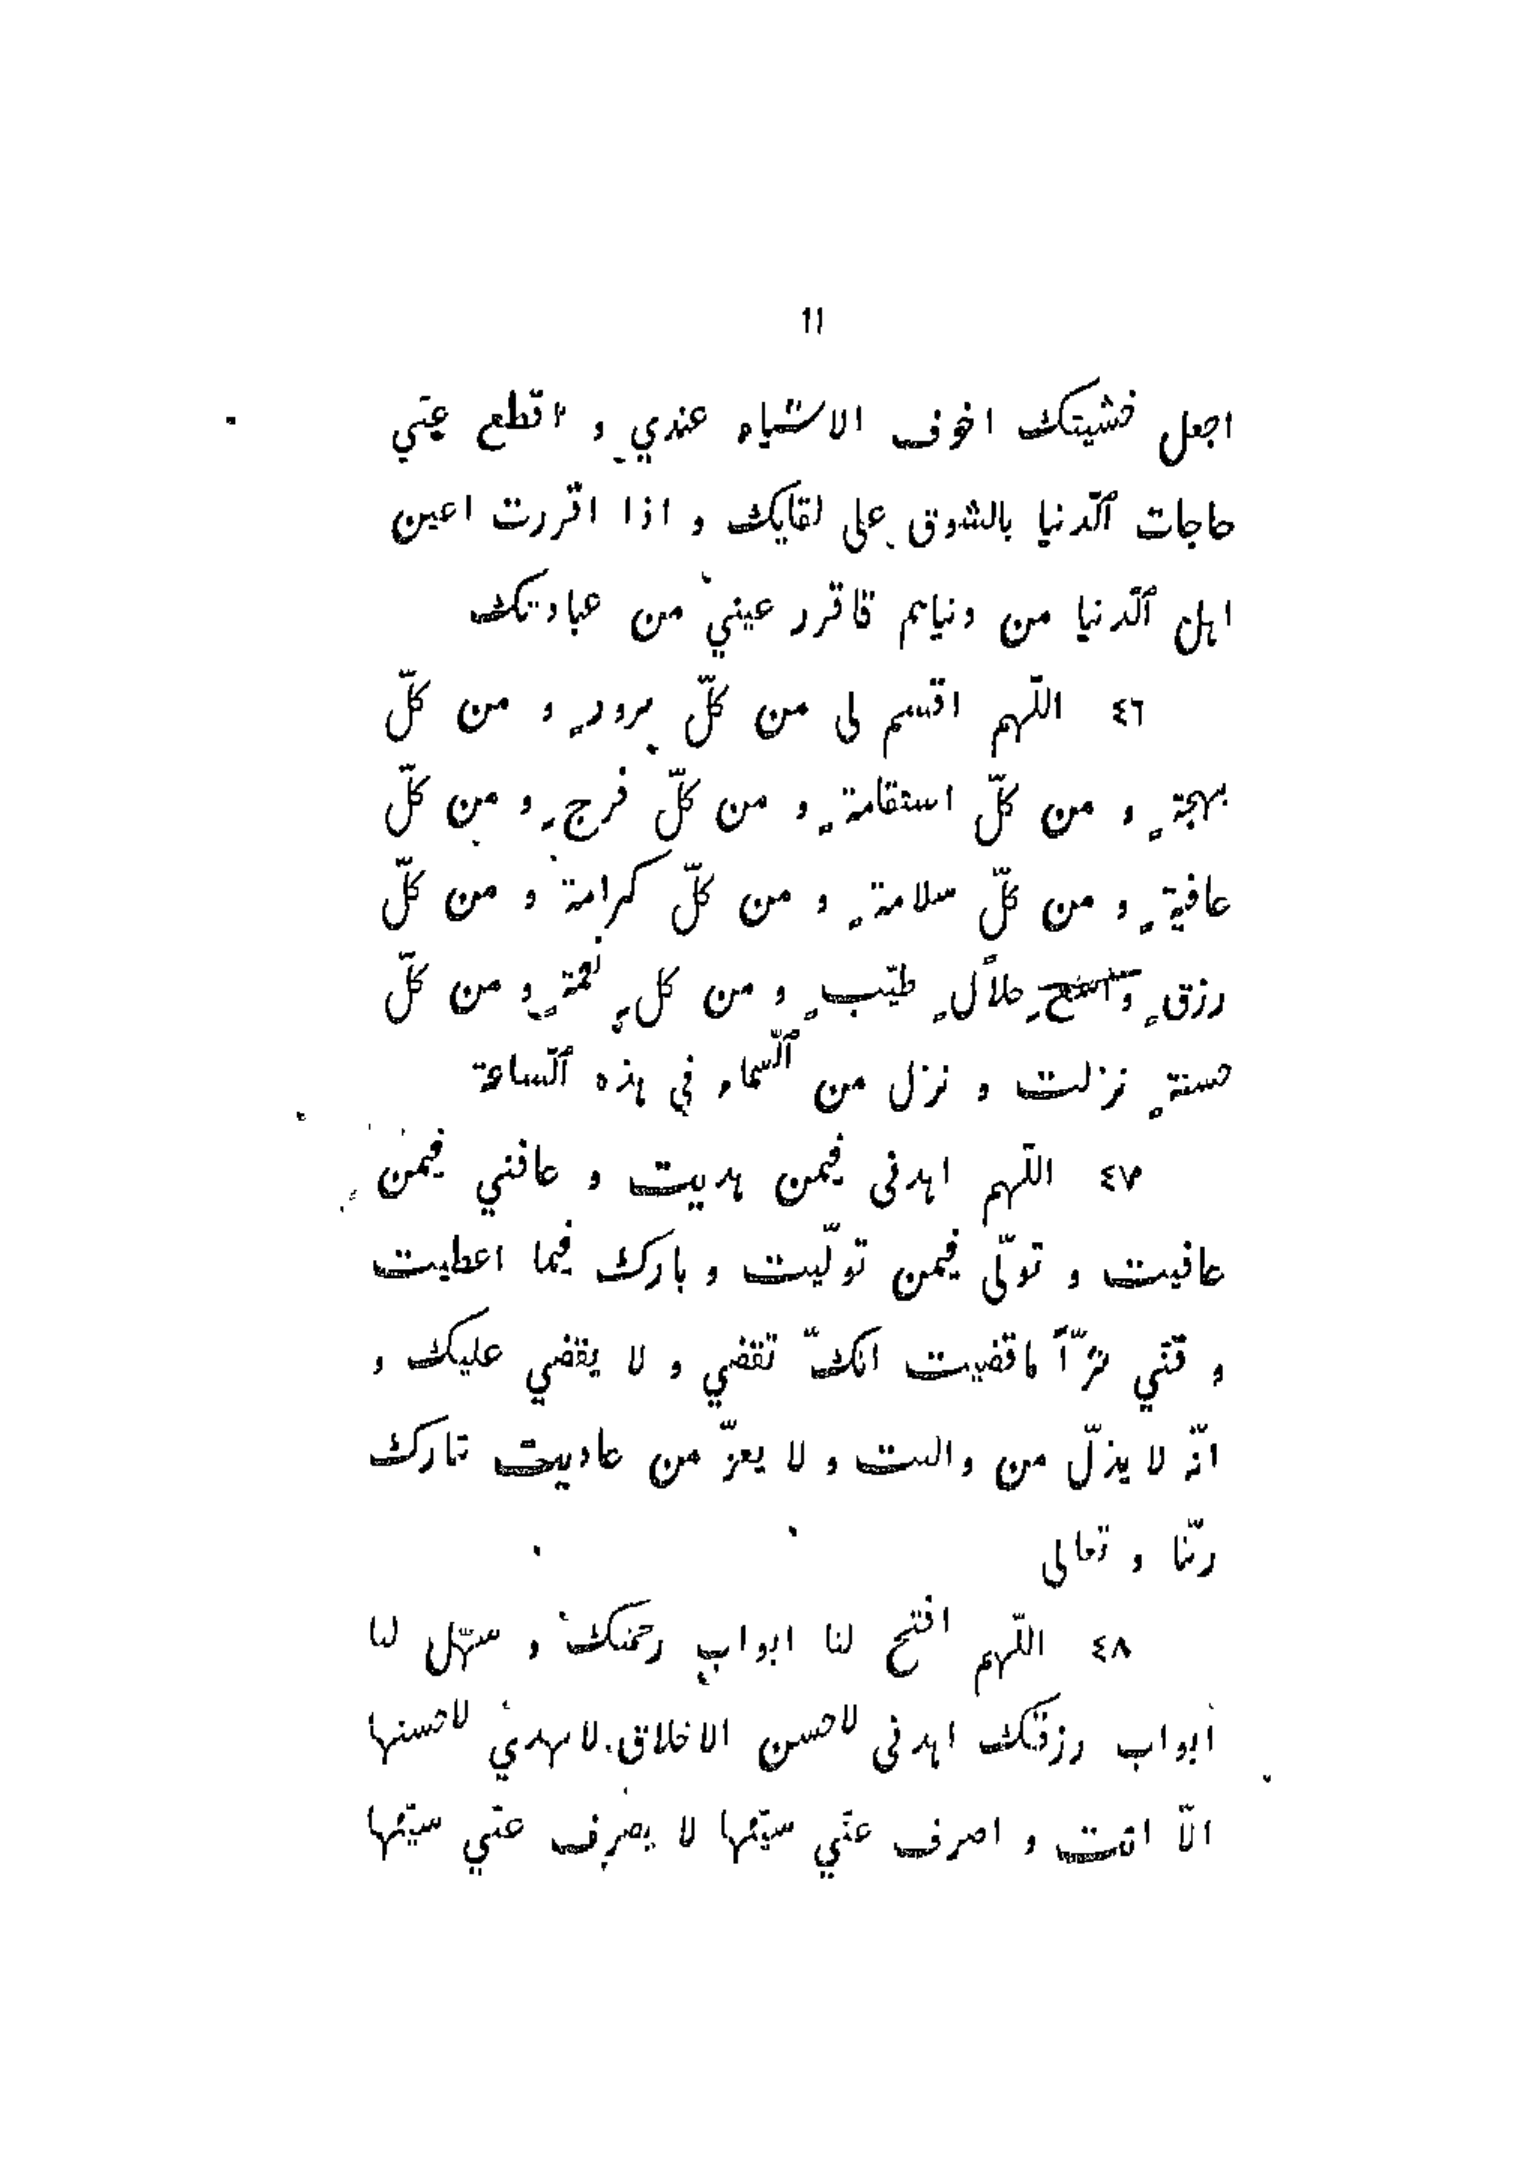 11
اجعل خشيتك اخوف الاشياء عندي و اقطع عنّي
حاجات ٱلّدنيا بالشوق على لقايك و اذا اقررت اعين
اهل ٱلّدنيا من دنياهم فاقرر عيني من عبادتك
٤٦ اللّهم اقسم لى من كلّ سرورٍ و من كلّ
بهجةٍ و من كلّ استقامةٍ و من كلّ فرجٍ و من كلّ
عافيةٍ و من كلّ سلامةٍ و من كلّ كرامة و من كلّ
رزقٍ واسعٍ حلالٍ طيّبٍ و من كلٍ نعمةٍ و من كلّ
حسنةٍ نزلت و نزل من ٱلّسماء في هذه ٱلّساعة
٤٧ اللّهم اهدنى فيمن هديت و عافني فيمن
عافيت و تولّى فيمن تولّيت و بارك فيما اعطيت
و قني شرّ ماقضيت انكّ تقضي و لا يقضي عليك و
انّه لا يذلّ من واليت و لا يعزّ من عاديت تبارك
ربّنا و تعالى
٤٨ اللّهم افتح لنا ابواب رحمتك و سهّل لنا
ابواب رزقك اهدنى لاحسن الاخلاق لايهدي لاحسنها
الاّ انت و اصرف عنّي سيّئها لا يصرف عنّي سيّئها